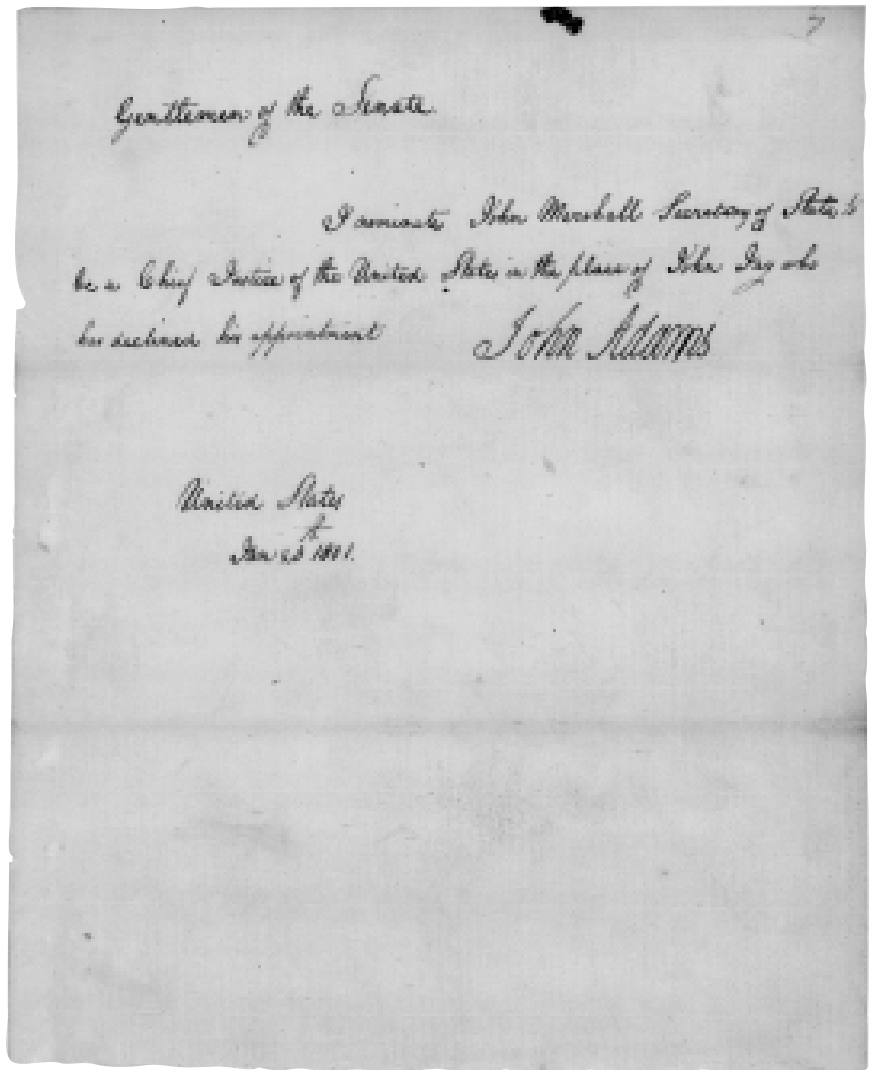 Gentlemen of the Senate.
I nominate John Marshall Secretary of State to
be a Chief Justice of the United States in the place of John Jay who
has declined his appointment
John Adams
United States
Jan 20th 1801.